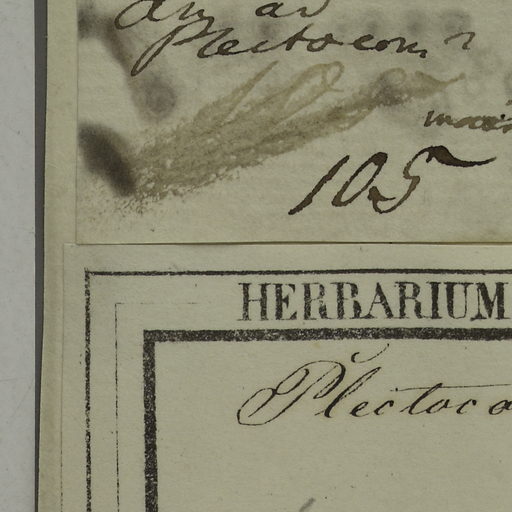 An ad
Plectocom?
105
HERBARIUM
Plectoco